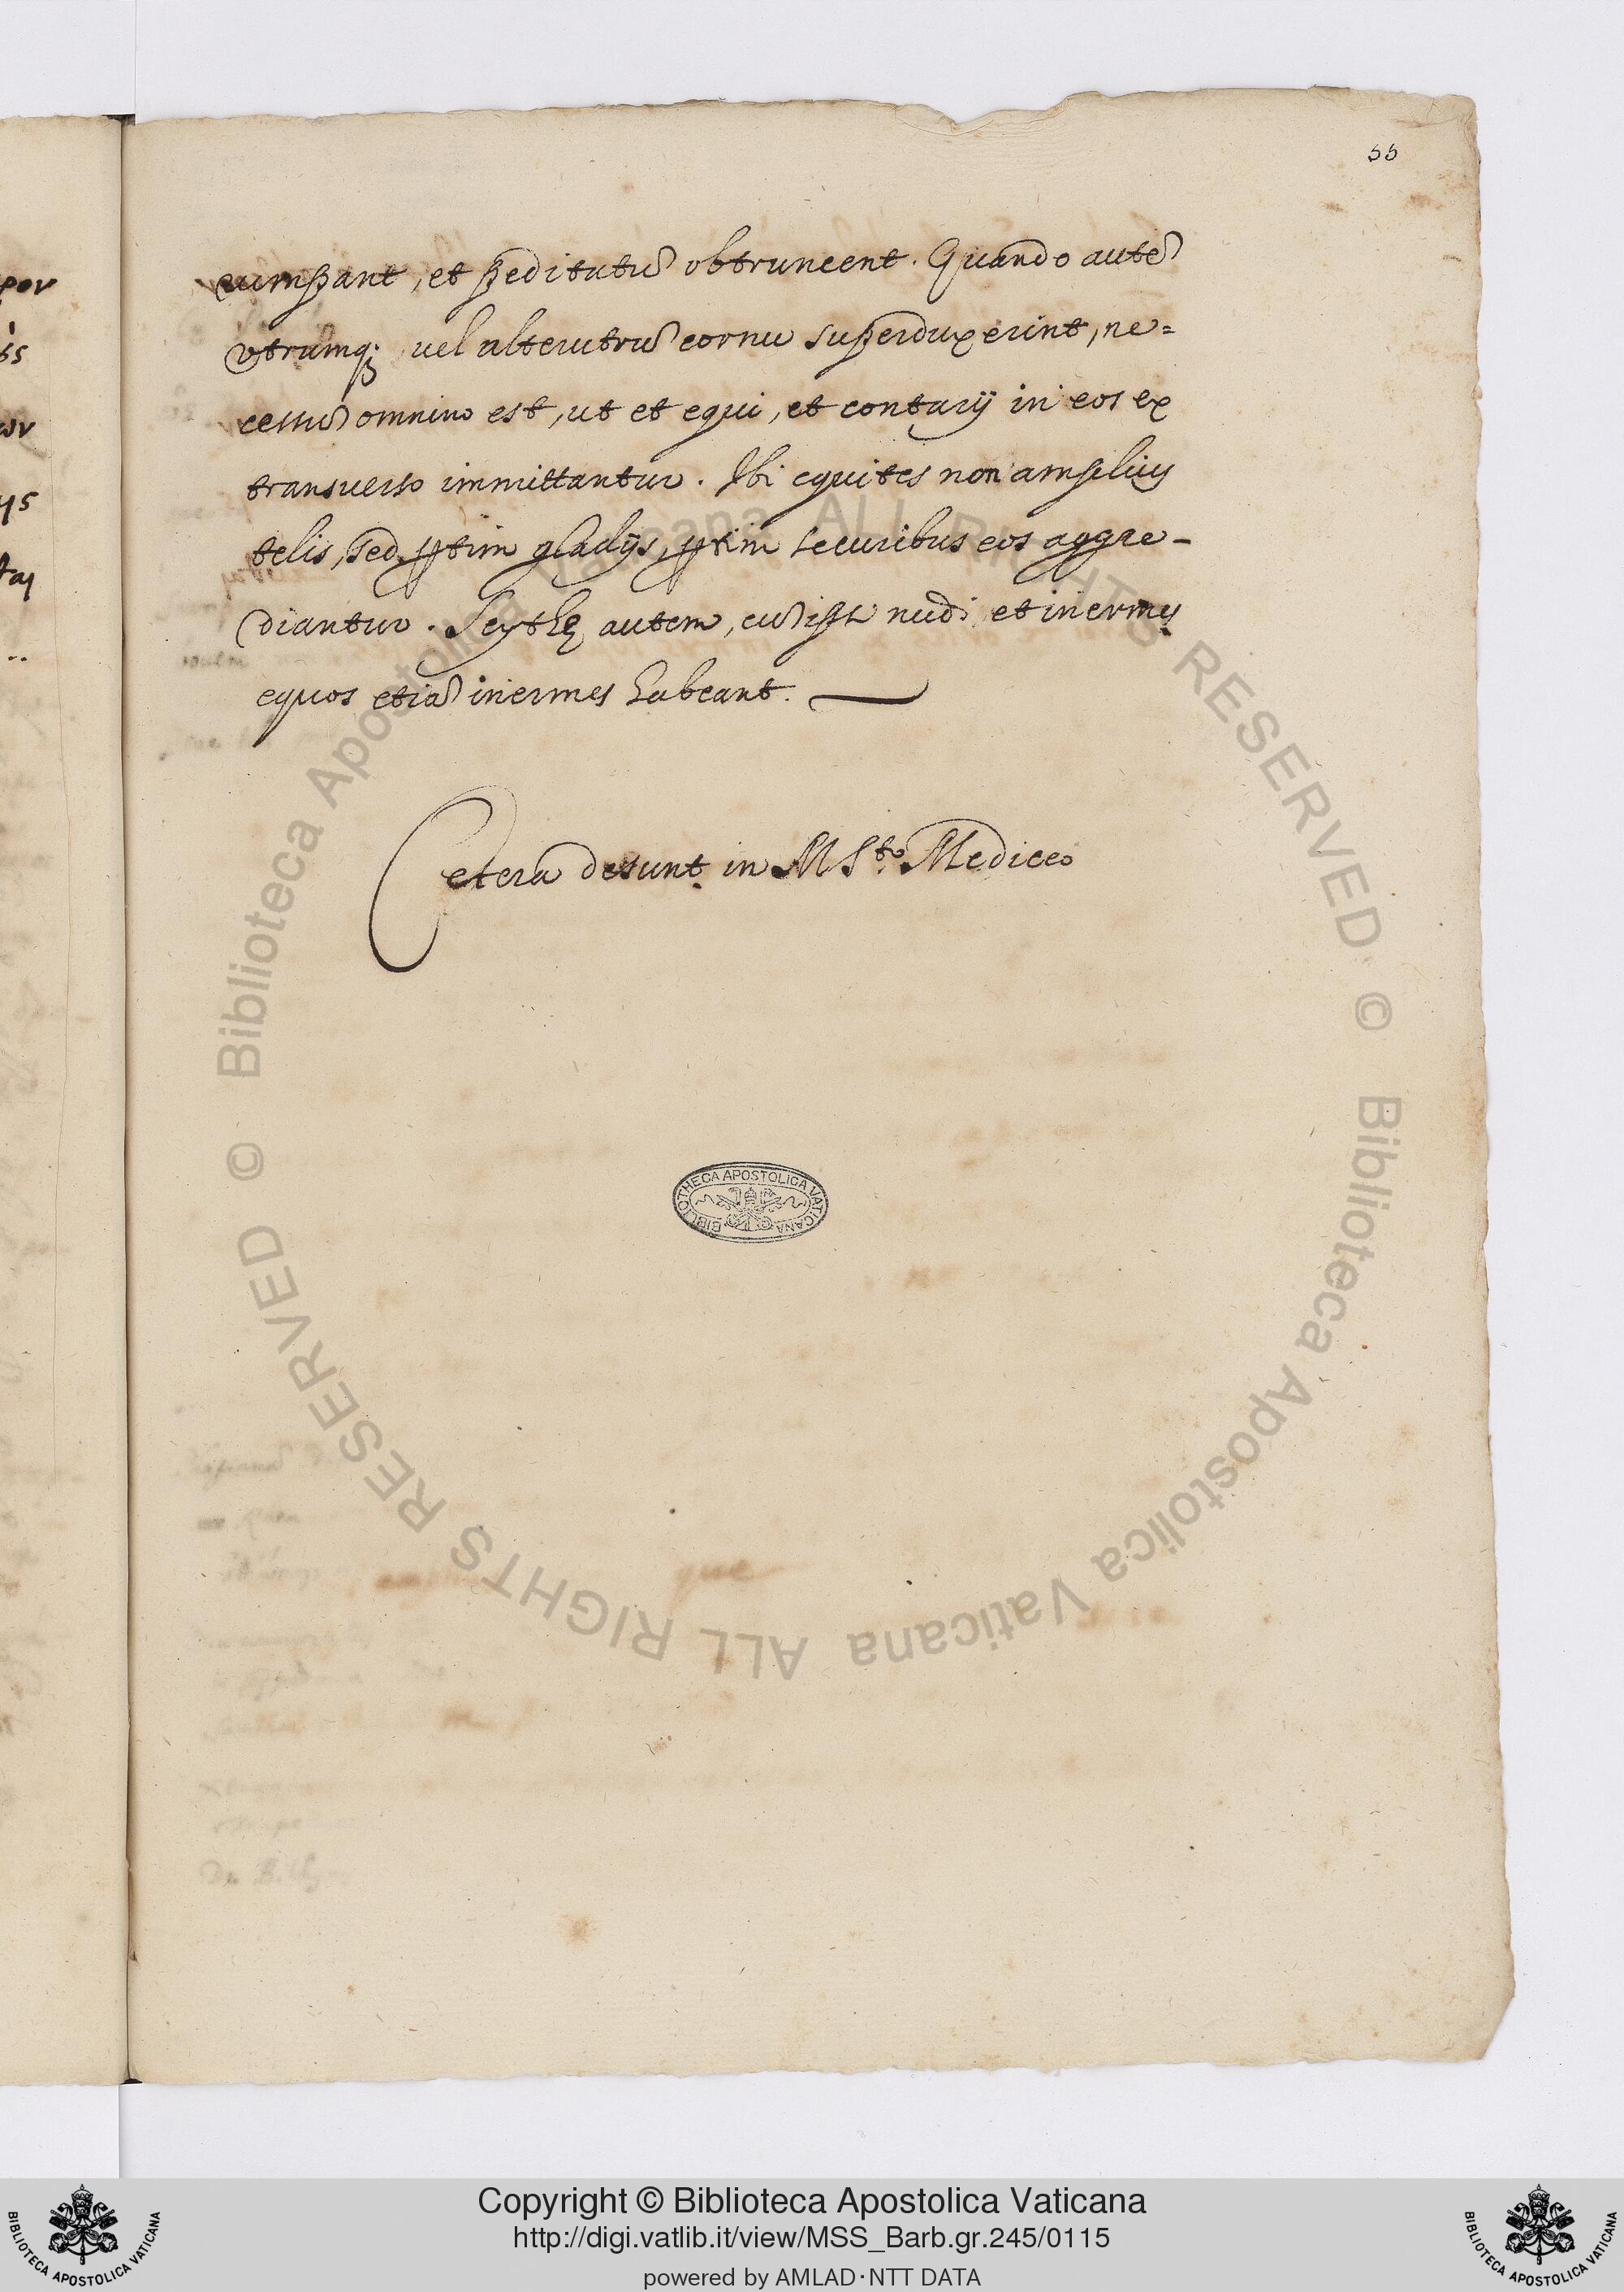 55
rumpant, et peditatū obtruncent. Quando autē
utrumq; uel alterutrū cornu superduxerint, ne=
cessū omnino est, ut et equi, et contarij in eos ex
transuerso immittantur. Ibi equites non amplius
telis, sed ptim gladijs, ptim securibus eos aggre-
diantur. Scythę autem, cū ipsi nudi et inermes
equos etiā inermes habeant.
Cetera desunt in MSto. Mediceo
BIBLIOTHECA APOSTOLICA VATICANA
© Biblioteca Apostolica Vaticana ALL RIGHTS RESERVED
© Biblioteca Apostolica Vaticana ALL RIGHTS RESERVED
Copyright © Biblioteca Apostolica Vaticana
http://digi.vatlib.it/view/MSS_Barb.gr.245/0115
powered by AMLAD·NTT DATA
BIBLIOTECA APOSTOLICA VATICANA
BIBLIOTECA APOSTOLICA VATICANA